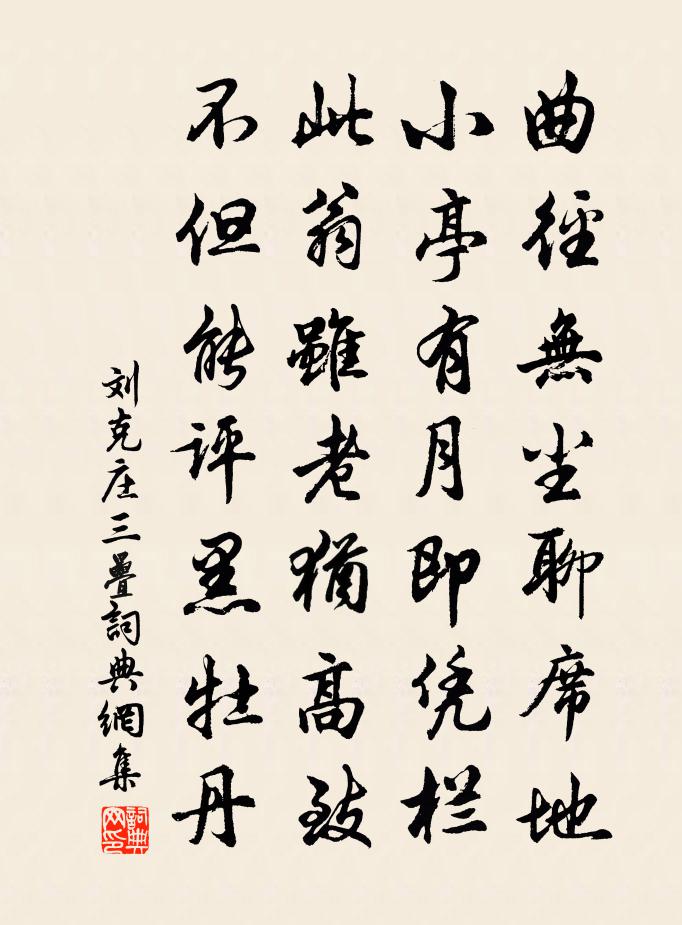 曲徑無尘聊席地
小亭有月即凭栏
此翁雖老猶高致
不但能评黑牡丹
刘克庄三疊詞典網集
詞典網印